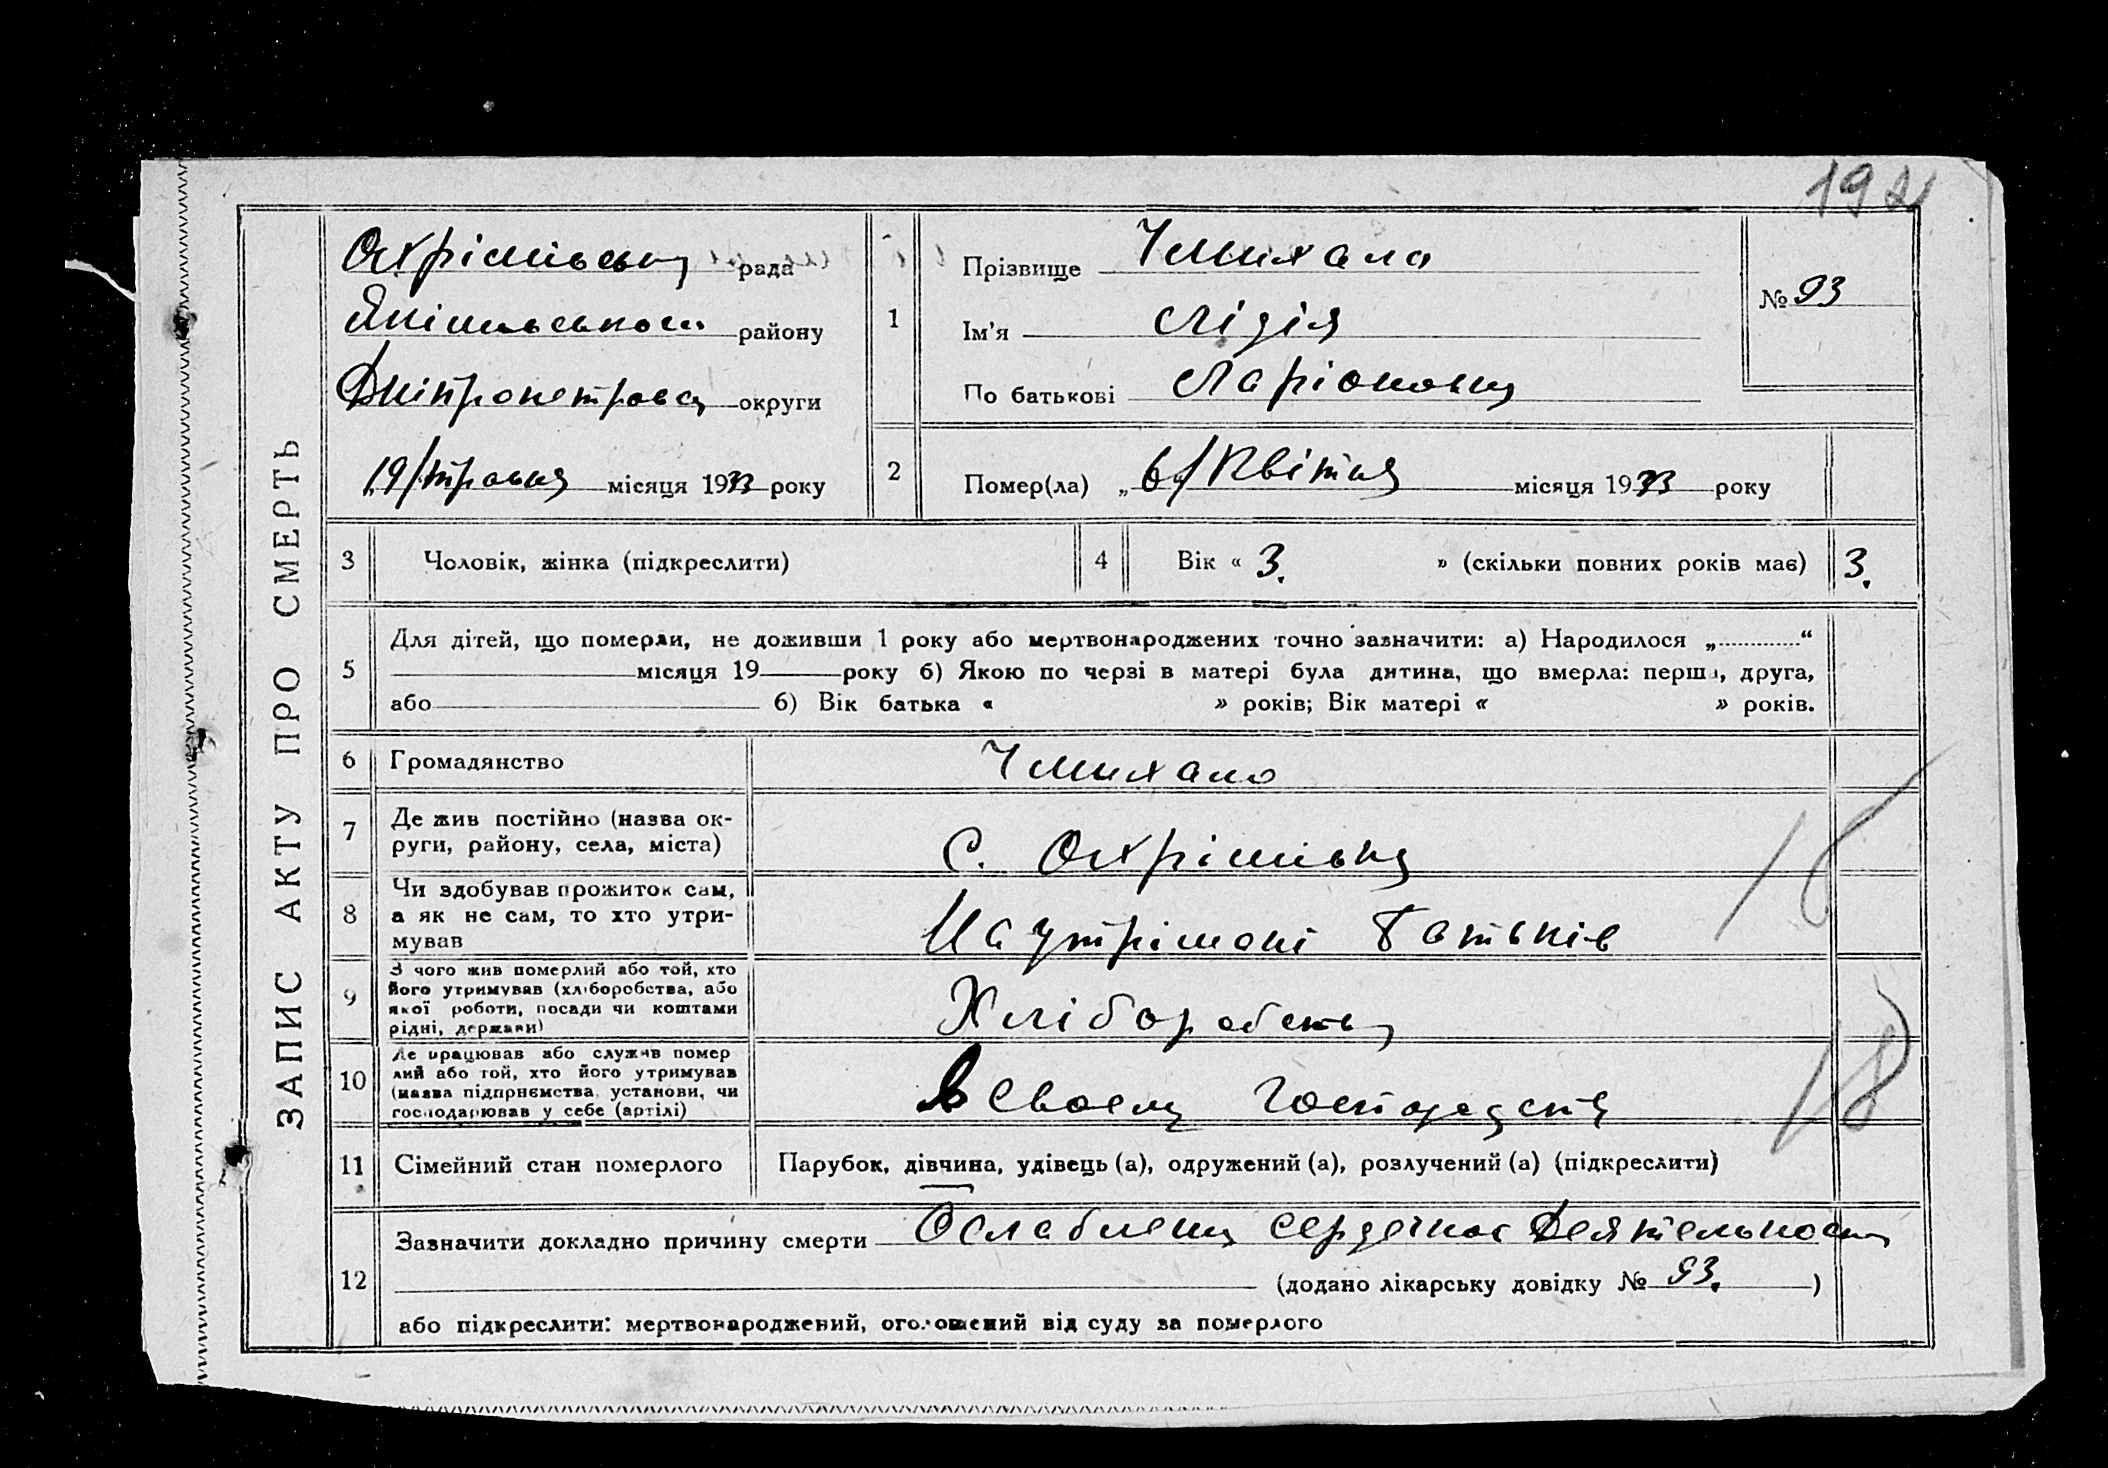 192
ЗАПИС АКТУ ПРО СМЕРТЬ
Охрімівська рада
Якімівського району
Дніпропетровс округи
„19/травня місяця 1933 року
1
Прізвище Чмихала
Ім'я Лідія
По батькові Ларіоновна
№ 93
2
Помер(ла) „6/Квітня місяця 1933 року
3 Чоловік, жінка (підкреслити)
4 Вік « 3. » (скільки повних років має) 3.
5
Для дітей, що померли, не доживши 1 року або мертвонароджених точно зазначити: а) Народилося „ “
місяця 19 року б) Якою по черзі в матері була дитина, що вмерла: перша, друга,
або б) Вік батька « » років; Вік матері « » років.
6 Громадянство
7 Де жив постійно (назва ок-
руги, району, села, міста) С. Охрімівка
8 Чи здобував прожиток сам,
а як не сам, то хто утри- На утрімані батьків
мував
9 З чого жив померлий або той, хто
його утримував (хліборобства, або
якої роботи, посади чи коштами
рідні, держави) Хліборобства
10 Де працював або служив помер
лий або той, хто його утримував
(назва підприємства, установи, чи
господарював у себе (артілі) в своему господарстві
11 Сімейний стан померлого Парубок, дівчина, удівець (а), одружений (а), розлучений (а) (підкреслити)
12
Зазначити докладно причину смерти Ослабления сердечной Деятельности
(додано лікарську довідку № 93. )
або підкреслити: мертвонароджений, оголошений від суду за померлого
16
18